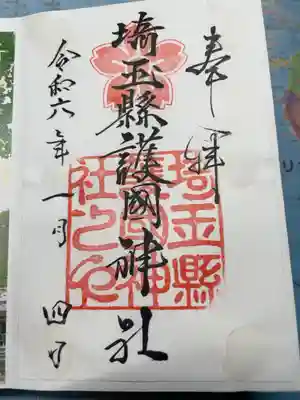 奉拝
埼玉縣護國神社
埼玉縣護國神社之印
令和六年一月四日